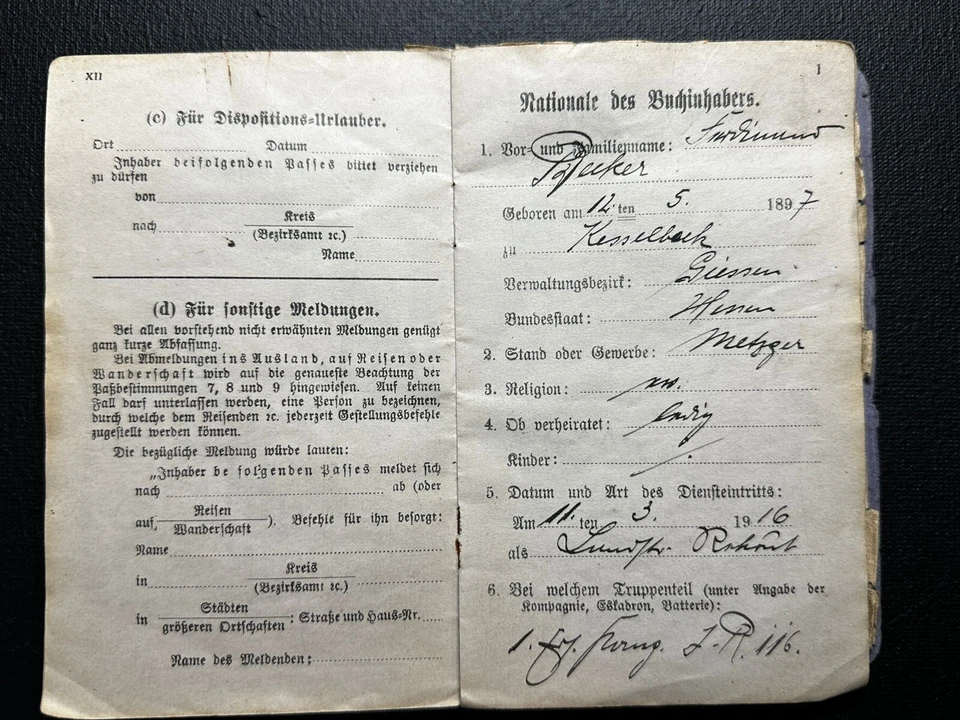 XII
(c) Für Dispositions-Urlauber.
Ort Datum
Inhaber beifolgenden Passes bittet verziehen
zu dürfen
von
nach Kreis
(Bezirksamt ꝛc.)
Name
(d) Für sonstige Meldungen.
Bei allen vorstehend nicht erwähnten Meldungen genügt
ganz kurze Abfassung.
Bei Abmeldungen ins Ausland, auf Reisen oder
Wanderschaft wird auf die genaueste Beachtung der
Paßbestimmungen 7, 8 und 9 hingewiesen. Auf keinen
Fall darf unterlassen werden, eine Person zu bezeichnen,
durch welche dem Reisenden ꝛc. jederzeit Gestellungsbefehle
zugestellt werden können.
Die bezügliche Meldung würde lauten:
„Inhaber be folgenden Passes meldet sich
nach ab (oder
auf Reisen
Wanderschaft). Befehle für ihn besorgt:
Name
in Kreis
(Bezirksamt ꝛc.)
in Städten
größeren Ortschaften: Straße und Haus-Nr.
Name des Meldenden:
1
Nationale des Buchinhabers.
1. Vor- und Familienname: Ferdinand
Becker
Geboren am 12. ten 5. 1897
zu Kesselbach
Verwaltungsbezirk: Giessen
Bundesstaat: Hessen
2. Stand oder Gewerbe: Metzger
3. Religion:
4. Ob verheiratet: ledig
Kinder: /
5. Datum und Art des Diensteintritts:
Am 11. ten 3. 1916
als Landst. Rekrut
6. Bei welchem Truppenteil (unter Angabe der
Kompagnie, Eskadron, Batterie):
1. Ers. I. R. 116.